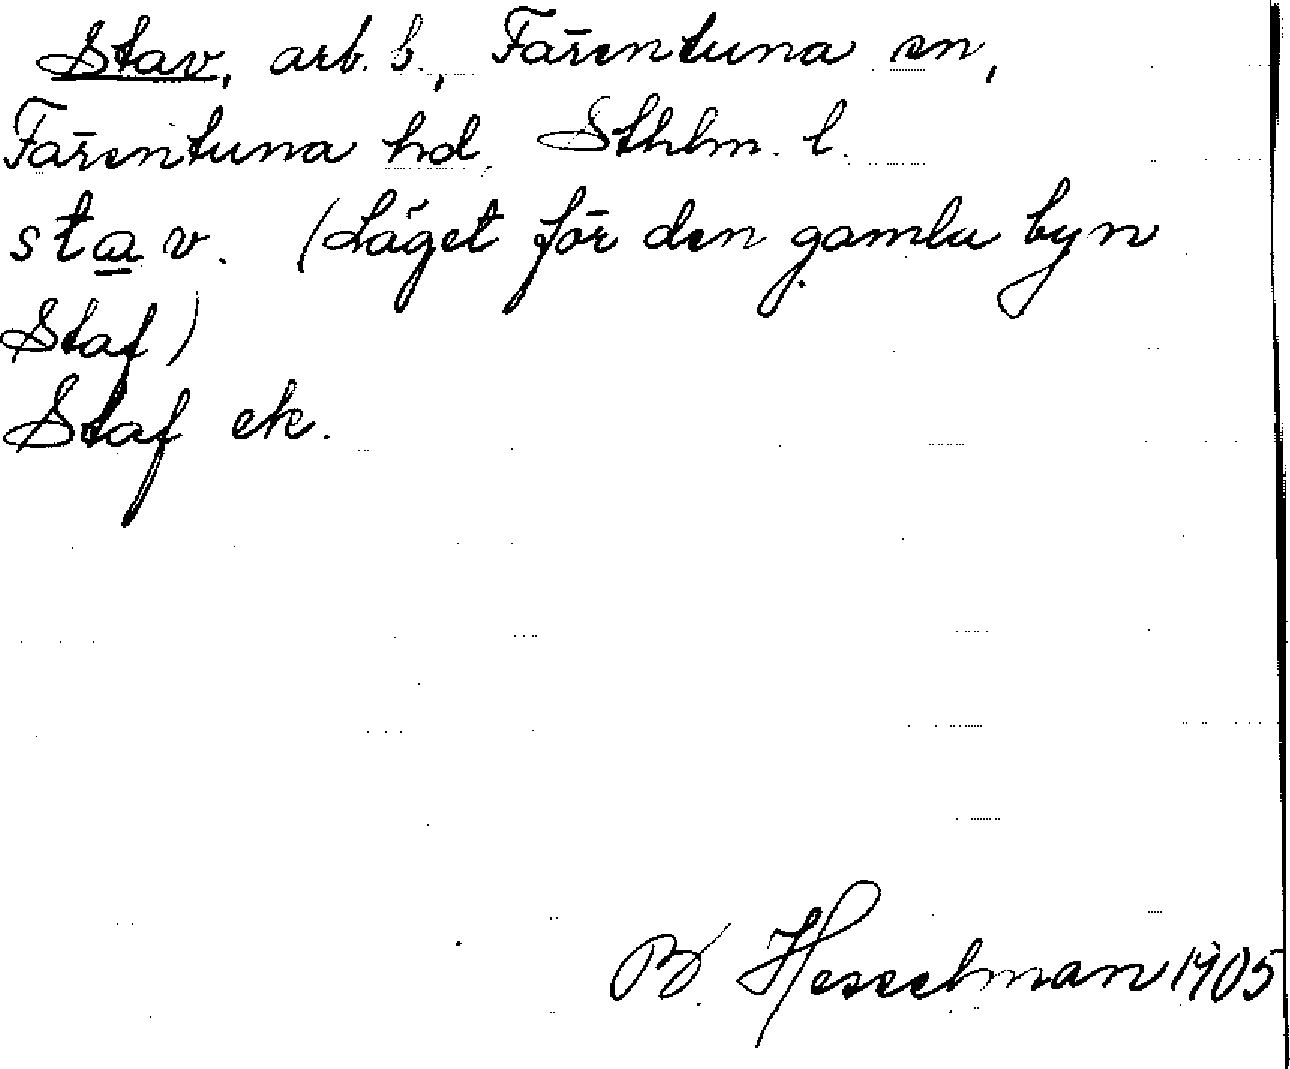 Stav, arb. b., Färentuna sn,
Färentuna hd. Sthlm. l.
stav. (Läget för den gamla byn
Staf)
Staf ek.
B. Hesselman 1905